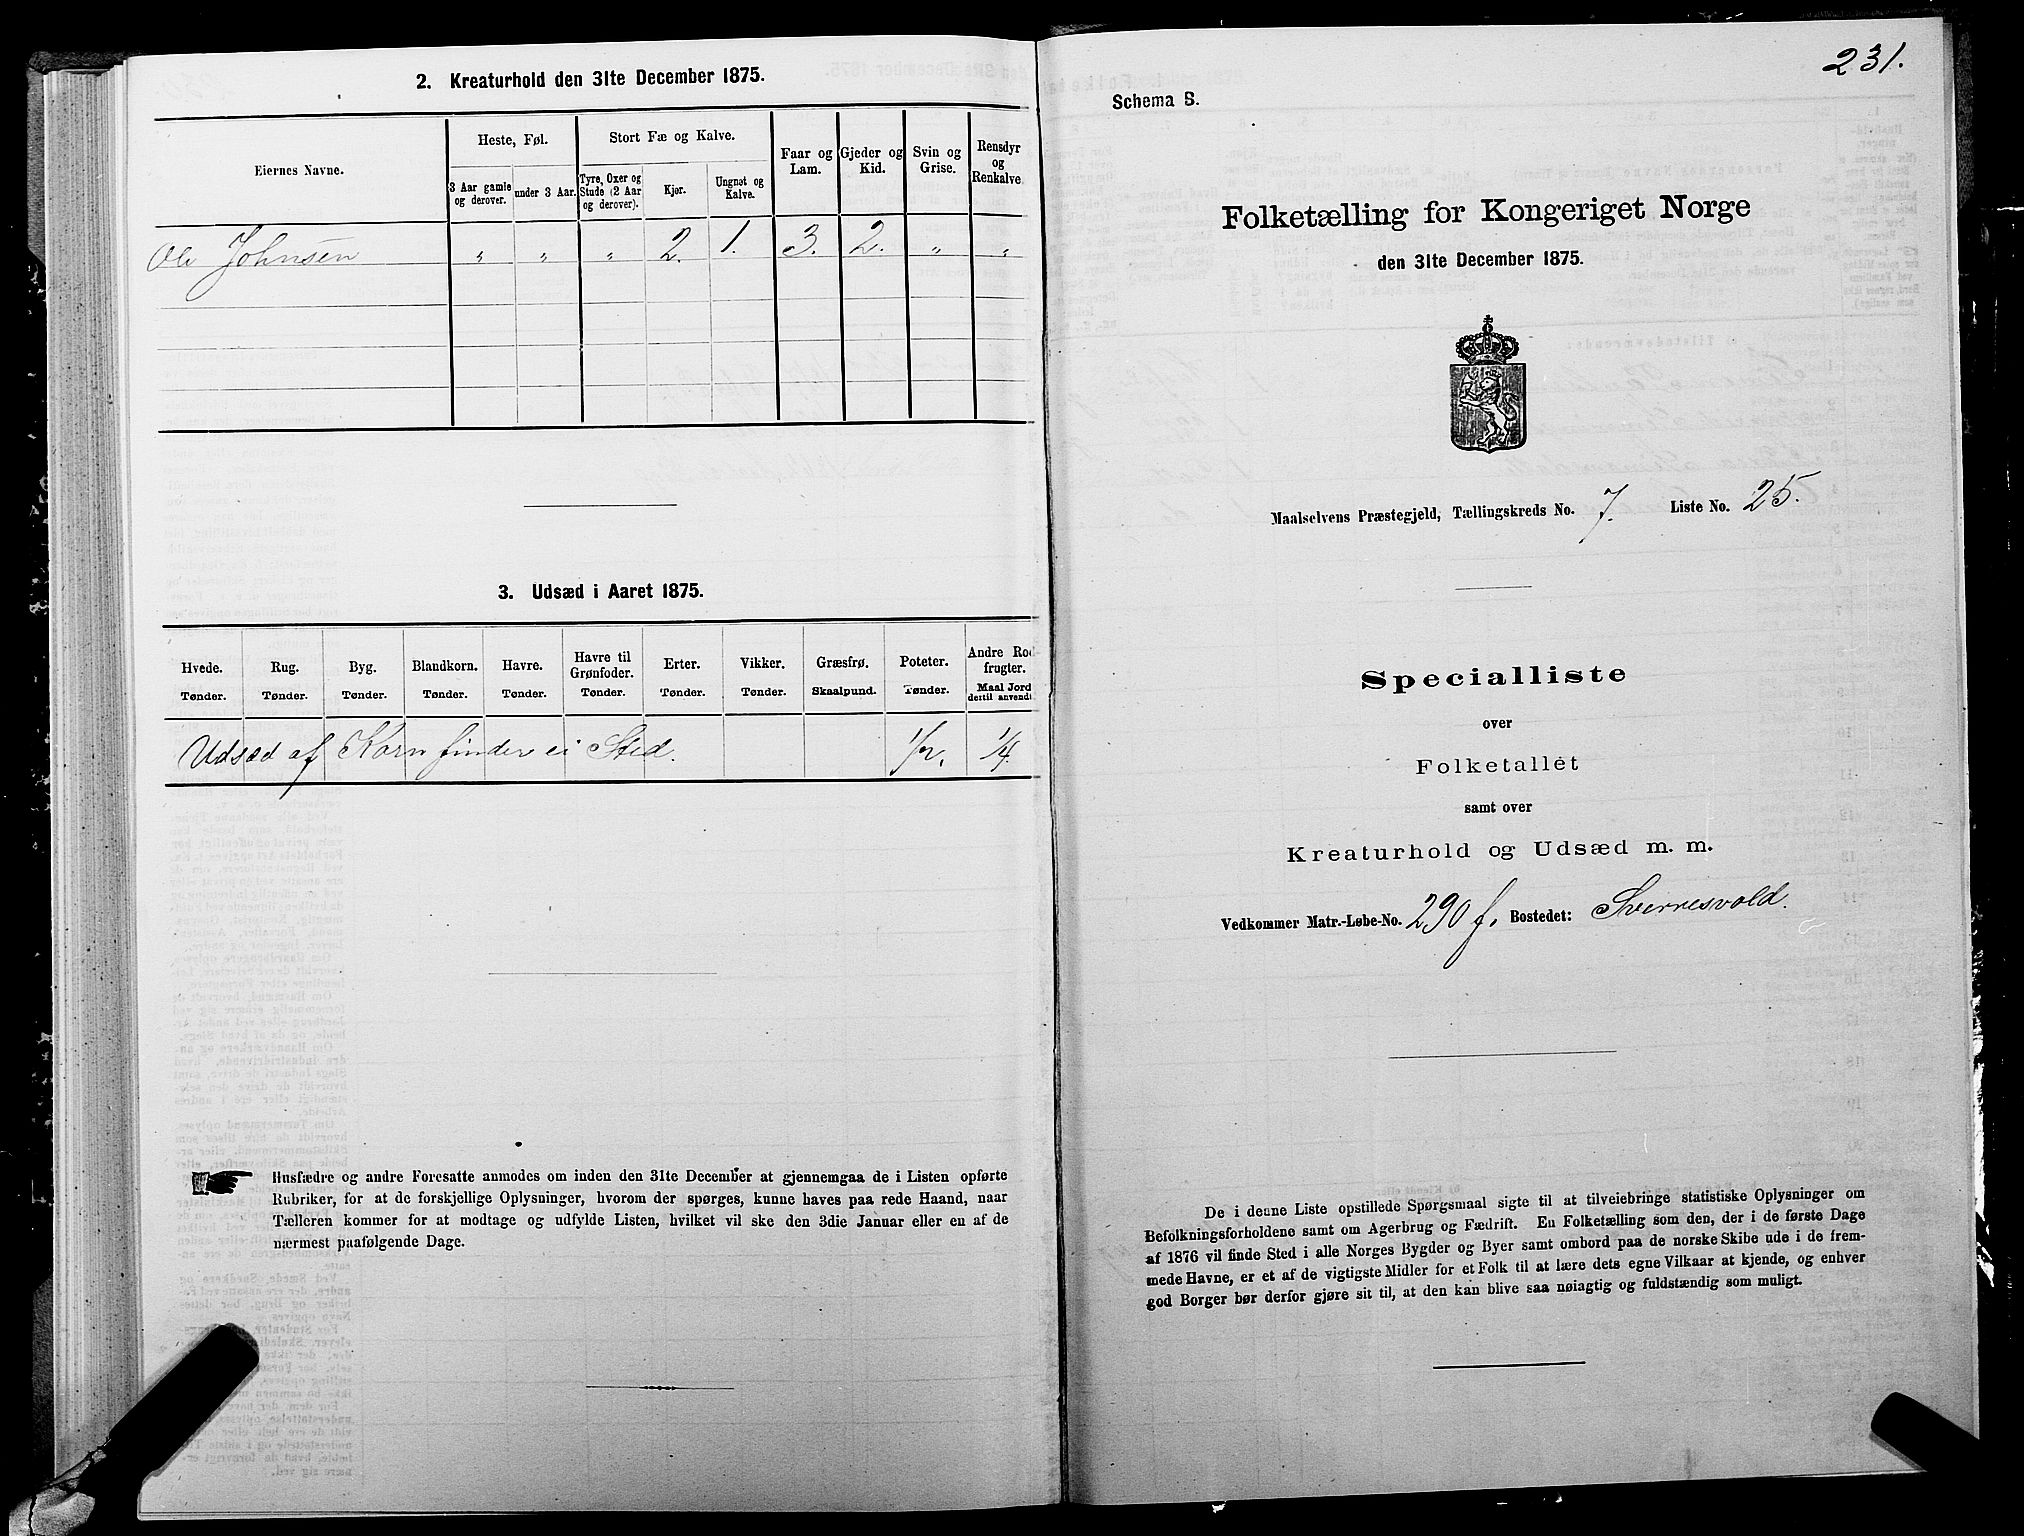 2. Kreaturhold den 31te December 1875.
Eiernes Navne.
Heste, Føl.
3 Aar gamle og derover.
under 3 Aar.
Stort Fæ og Kalve.
Tyre, Oxer og Stude (2 Aar og derover).
Kjør.
Ungnøt og Kalve.
Faar og Lam.
Gjeder og Kid.
Svin og Grise.
Rensdyr og Renkalve.
Ole Johnsen " " " 2. 1. 3. 2. " "
3. Udsæd i Aaret 1875.
Hvede. Rug. Byg. Blandkorn. Havre. Havre til Grønfoder. Erter. Vikker. Græsfrø. Poteter. Andre Rodfrugter.
Tønder. Tønder. Tønder. Tønder. Tønder. Tønder. Tønder. Tønder. Skaalpund. Tønder. Maal Jord dertil anvendt.
Udsæd af Korn finder ei Sted. 1/2. 1/4.
Husfædre og andre Foresatte anmodes om inden den 31te December at gjennemgaa de i Listen opførte
Rubriker, for at de forskjellige Oplysninger, hvorom der spørges, kunne haves paa rede Haand, naar
Tælleren kommer for at modtage og udfylde Listen, hvilket vil ske den 3die Januar eller en af de
nærmest paafølgende Dage.
231.
Schema B.
Folketælling for Kongeriget Norge
den 31te December 1875.
Maalselvens Præstegjeld, Tællingskreds No. 7. Liste No. 25.
Specialliste
over
Folketallet
samt over
Kreaturhold og Udsæd m. m.
Vedkommer Matr.-Løbe-No. 290 f. Bostedet: Sverresvold.
De i denne Liste opstillede Spørgsmaal sigte til at tilveiebringe statistiske Oplysninger om
Befolkningsforholdene samt om Agerbrug og Fædrift. En Folketælling som den, der i de første Dage
af 1876 vil finde Sted i alle Norges Bygder og Byer samt ombord paa de norske Skibe ude i de frem-
mede Havne, er et af de vigtigste Midler for et Folk til at lære dets egne Vilkaar at kjende, og enhver
god Borger bør derfor gjøre sit til, at den kan blive saa nøiagtig og fuldstændig som muligt.